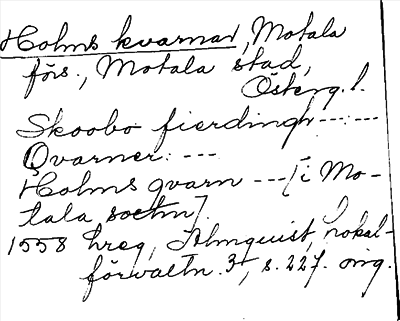 Holms kvarnar, Motala
förs., Motala stad,
Österg. l.
Skoobo fierdingh --- : ---
Qvarner: ---
Holms qvarn --- [i Mo-
tala soctn].
1558 hreg, Almquist, Lokal-
förvaltn. 3, s. 227. orig.